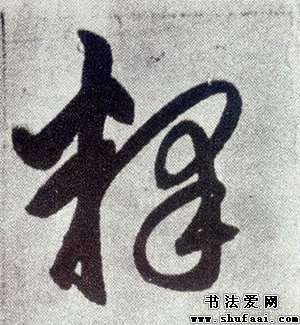 释
书法爱网
www.shufaai.com